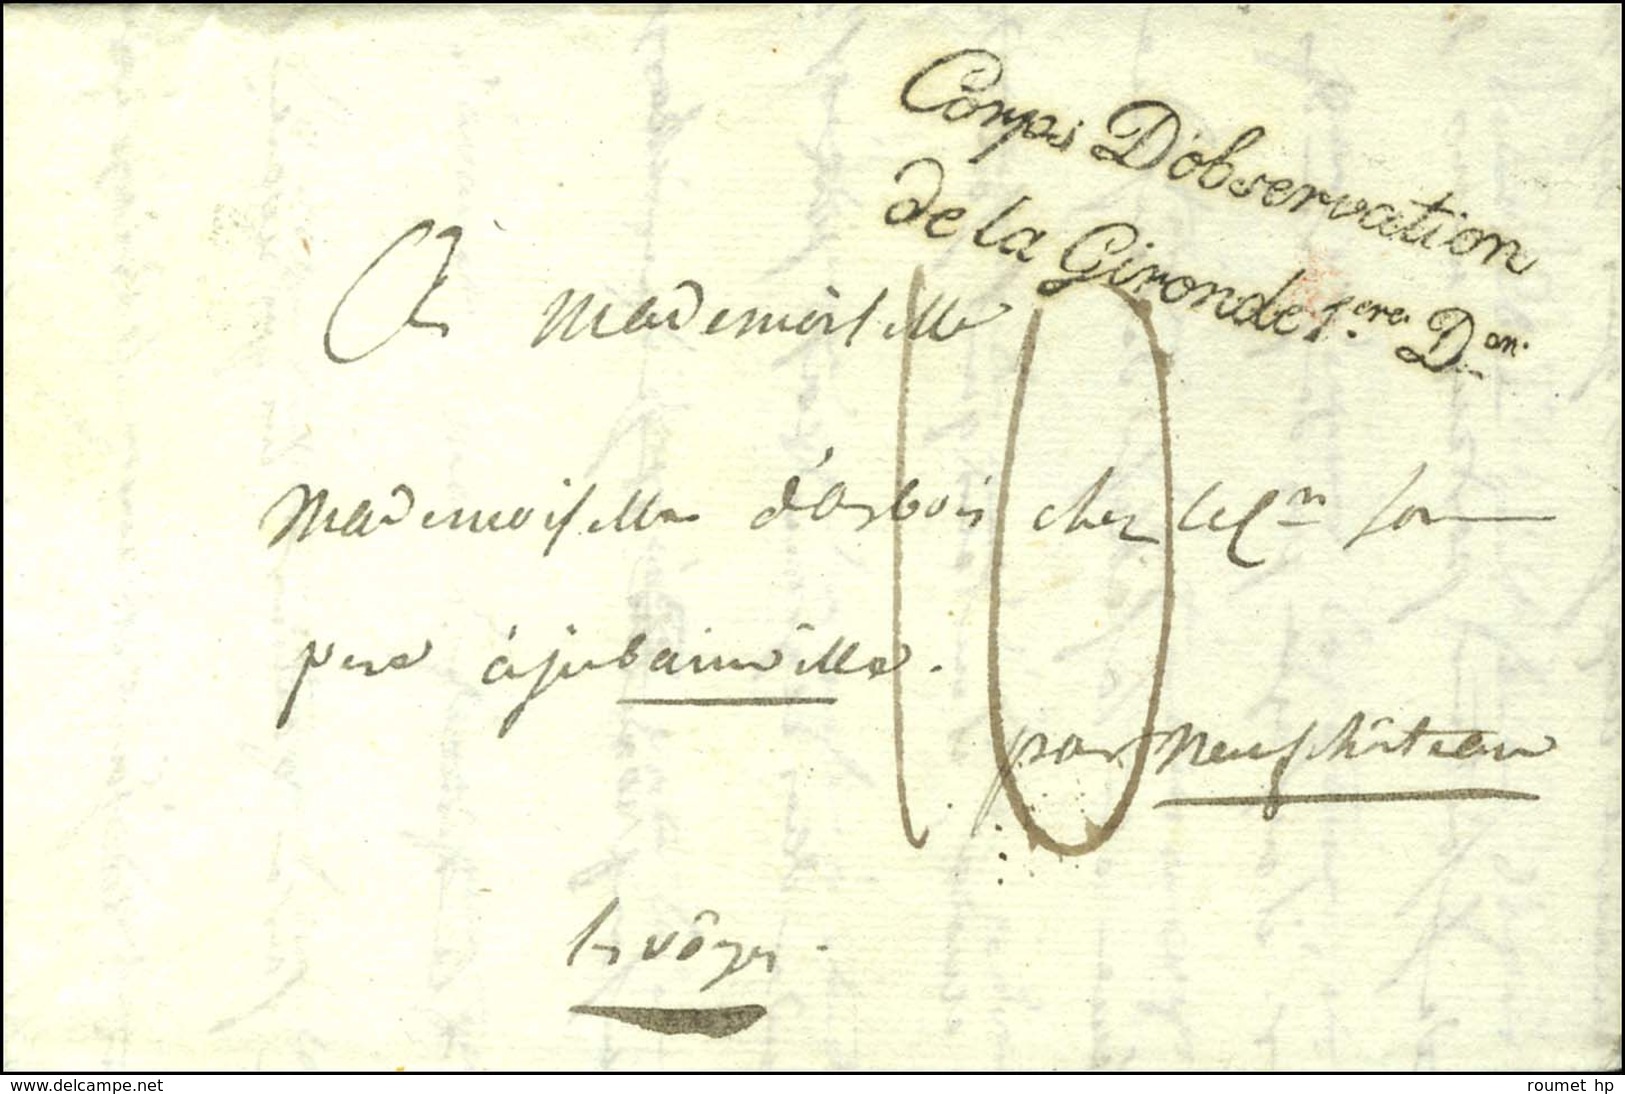 Corps D'observation
de la Gironde 1.ere D.on
A Mademoiselle
10
Mademoiselle d'arbois chez son
pere à jubainville.
par Neufchâteau
les vôges.
www.delcampe.net
roumet hp